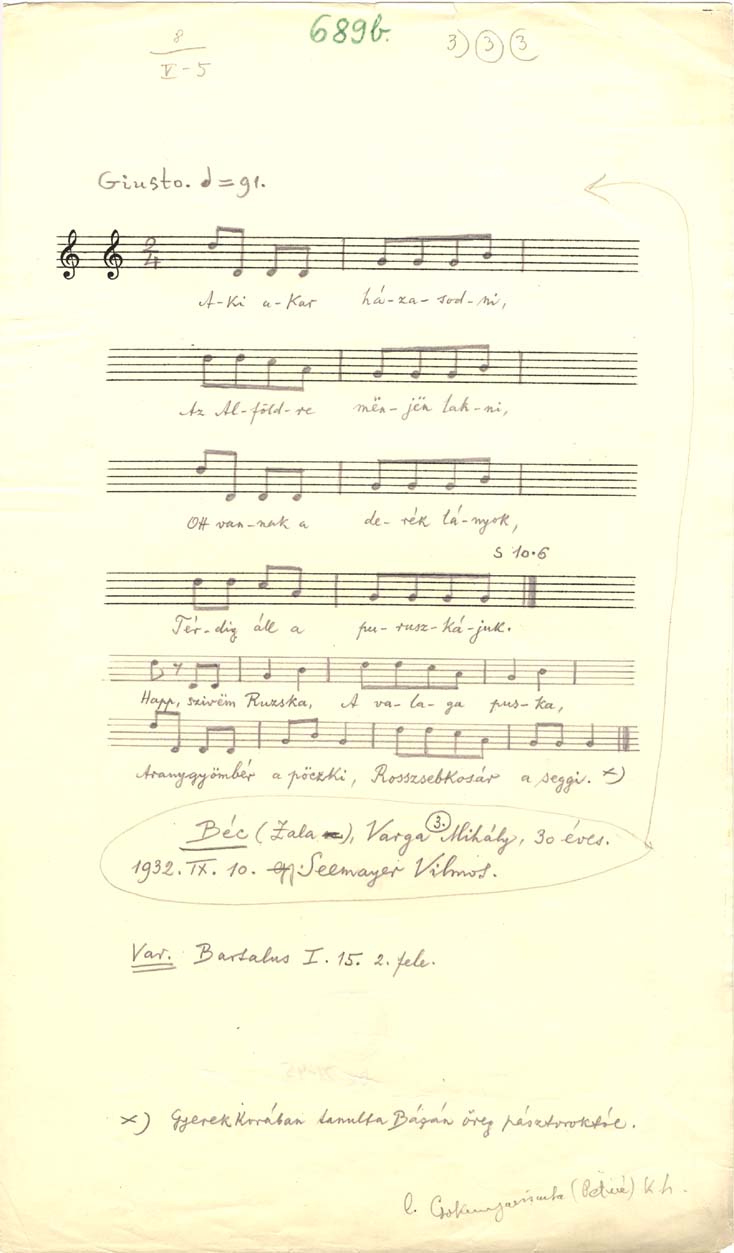 689b.
8
V-5
3) 3 3
Giusto. d = 91.
2
4
A-ki a-kar há-za-sod-ni,
Az Al-föld-re mën-jën lak-ni,
Ott van-nak a de-rék lá-nyok,
S 10.6
Tér-dig áll a pu-rusz-ká-juk.
Happ, szivëm Ruzska, A va-la-ga pus-ka,
Aranygyömbér a pöczki, Rosszsebkosár a seggi. x)
Béc (Zala), Varga Mihály, 30 éves. 3.
1932. IX. 10. Seemayer Vilmos.
Var. Bartalus I. 15. 2. fele.
x) Gyerekkorában tanulta Bázán öreg pásztoroktól.
l. K. h.